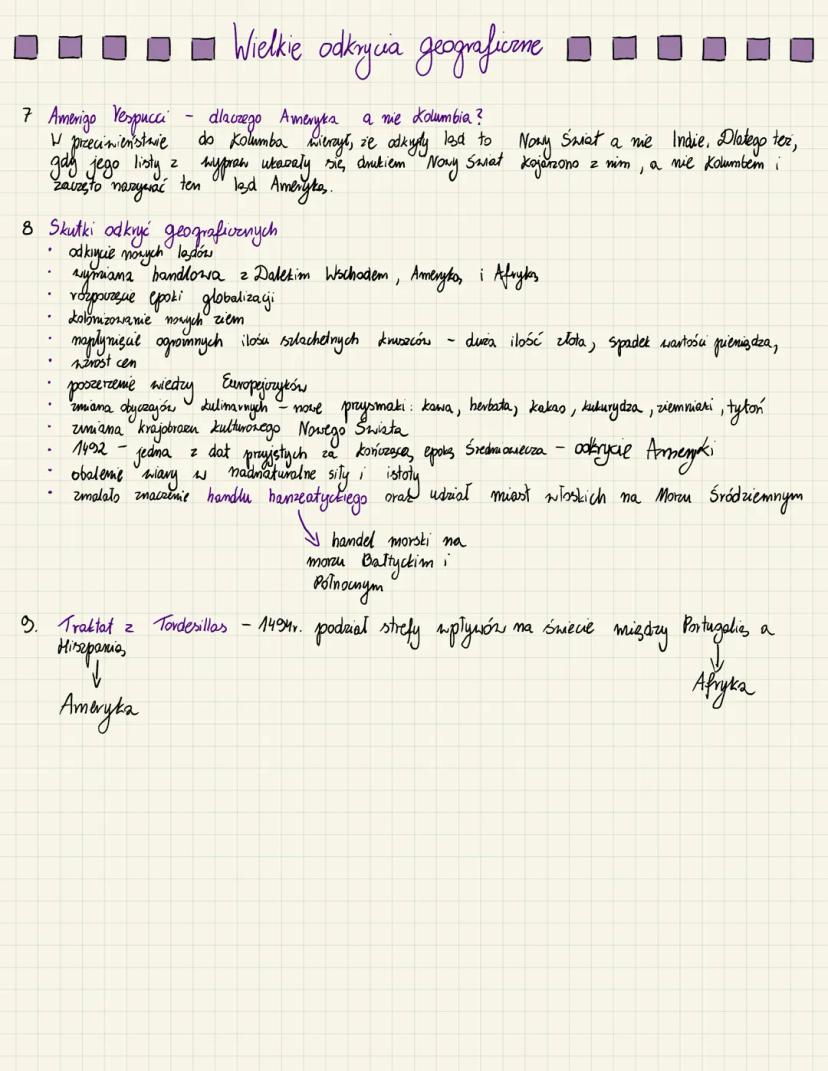 Wielkie odkrycia geograficzne
7 Amerigo Vespucci - dlaczego Ameryka a nie Kolumbia?
W przeciwieństwie do Kolumba wierzył, że odkryty ląd to Nowy Świat a nie Indie. Dlatego też,
gdy jego listy z wypraw ukazały się drukiem Nowy Świat kojarzono z nim, a nie Kolumbem i
zaczęto nazywać ten ląd Ameryką.
8 Skutki odkryć geograficznych
• odkrycie nowych lądów
• wymiana handlowa z Dalekim Wschodem, Ameryką i Afryką
• rozpoczęcie epoki globalizacji
• kolonizowanie nowych ziem
• napłynięcie ogromnych ilości szlachetnych kruszców - duża ilość złota, spadek wartości pieniądza,
• wzrost cen
• poszerzenie wiedzy Europejczyków
• zmiana obyczajów kulinarnych - nowe przysmaki: kawa, herbata, kakao, kukurydza, ziemniaki, tytoń
• zmiana krajobrazu kulturowego Nowego Świata
• 1492 - jedna z dat przyjętych za kończącą epokę średniowiecza - odkrycie Ameryki
• obalenie wiary w nadnaturalne siły i istoty
• zmalało znaczenie handlu hanzeatyckiego oraz udział miast włoskich na Morzu Śródziemnym
handel morski na
morzu Bałtyckim i
Północnym
9. Traktat z Tordesillas - 1494r. podział strefy wpływów na świecie między Portugalią a
Hiszpanią
Afryka
Ameryka